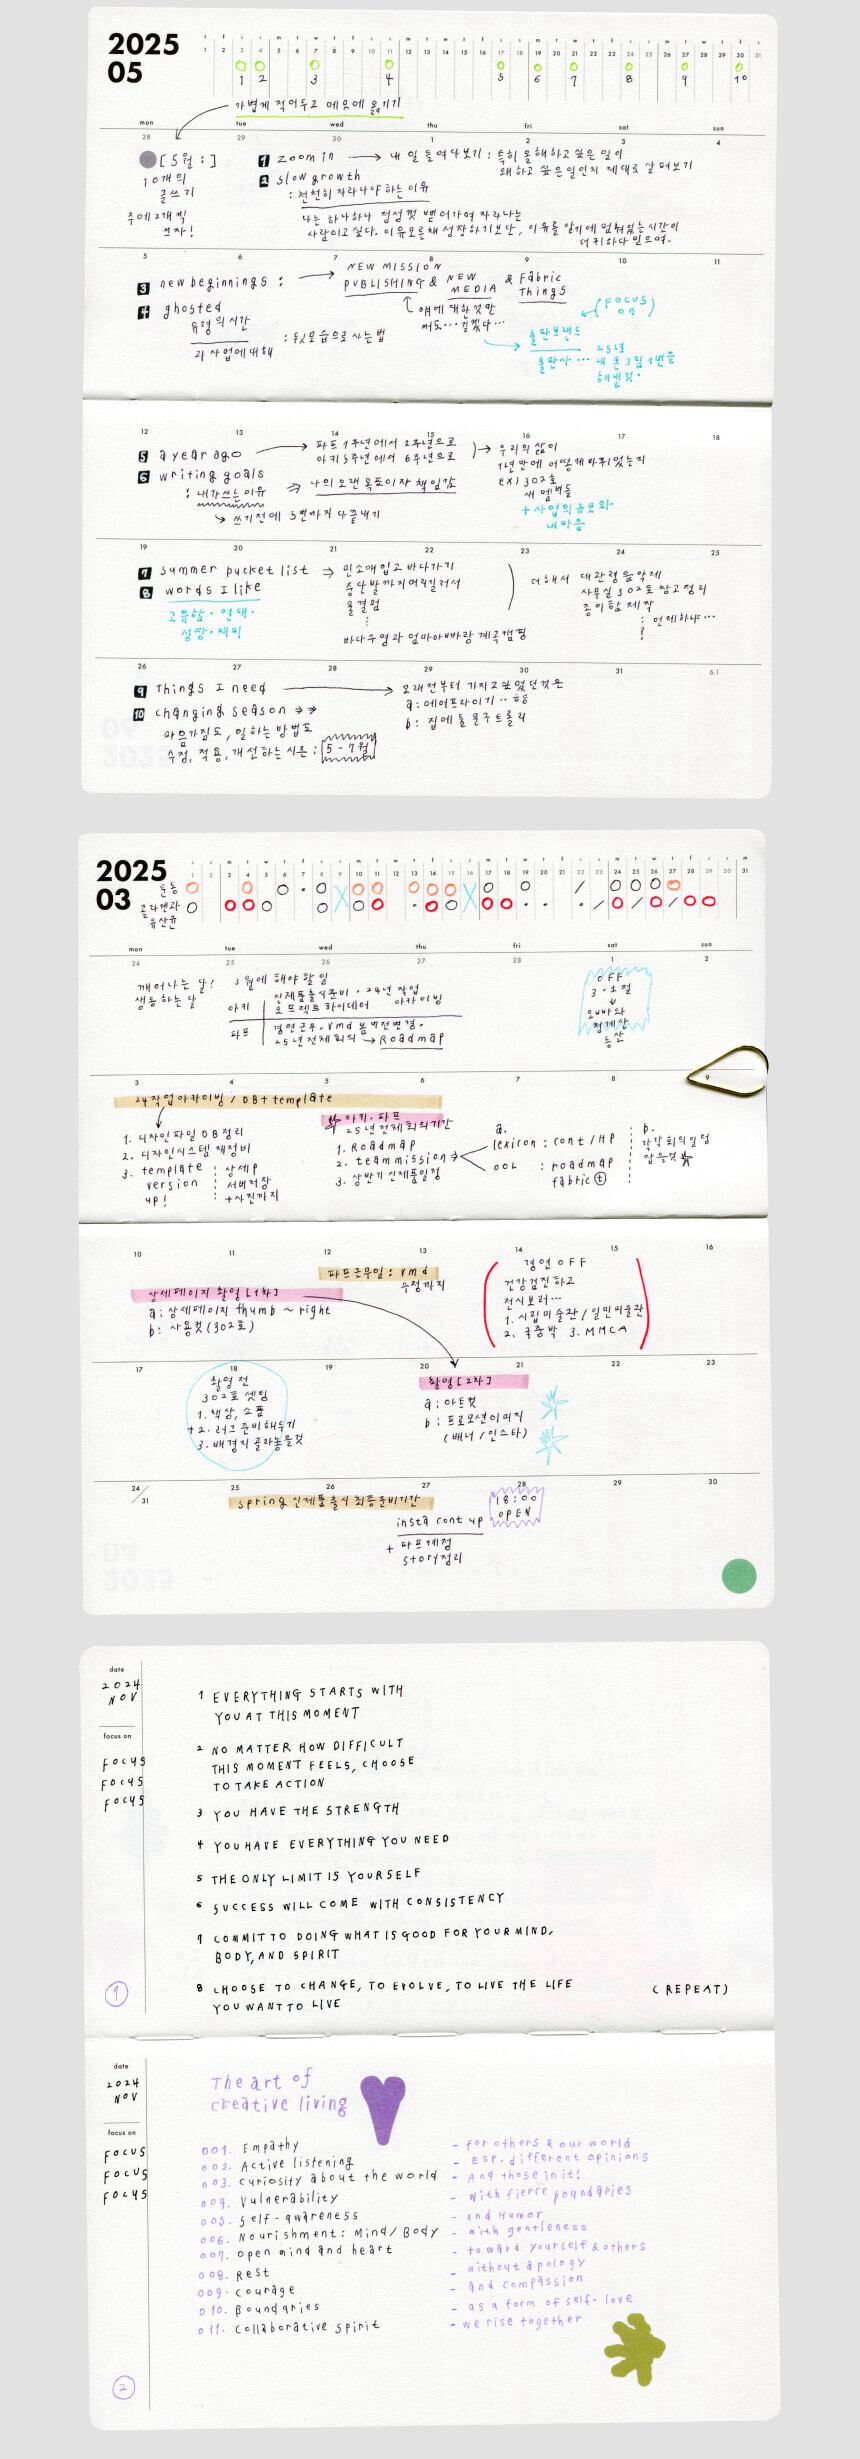 2025
05
1 2 3 4 5 6 7 8 9 10 11 12 13 14 15 16 17 18 19 20 21 22 23 24 25 26 27 28 29 30 31
1 2 3 4 5 6 7 8 9 10
가볍게 적어두고 메모에 옮기기
mon tue wed thu fri sat sun
28 29 30 1 2 3 4
[5월:]
10개의
글쓰기
주에 2개씩
쓰자!
1 zoom in → 내 일 들여다보기 : 특히 올해 하고 싶은 일이
왜 하고 싶은 일인지 제대로 살펴보기
2 slow growth
: 천천히 자라나야 하는 이유
나는 하나하나 정성껏 뻗어가며 자라나는
사람이고 싶다. 이유모른채 성장하기보단, 이유를 알기에 멈춰있는 시간이
더 귀하다 믿으며.
5 6 7 8 9 10 11
3 new beginnings : → NEW MISSION
PUBLISHING & NEW MEDIA & Fabric Things
얘에 대한것만
써도… 길겠다…
(FOCUS ON)
출판브랜드
출판사 … 25년
내 꼭 3월 1번을
해낼것.
4 ghosted
유령의 시간
과 사업에 대해 : 두모습으로 사는 법
12 13 14 15 16 17 18
5 a year ago → 파프 1주년에서 2주년으로
아키 5주년에서 6주년으로
→ 우리의 삶이
1년만에 어떻게 바뀌었는지
ex) 302호
새 멤버들
+ 사업의 규모와
내마음
6 writing goals
: 내가 쓰는 이유 ⇒ 나의 오랜 목표이자 책임감
↳ 쓰기 전에 5번까지 다 끝내기
19 20 21 22 23 24 25
7 summer pucket list → 민소매 입고 바다가기
중단발까지 머리길러서
올결펌
⋮
바다수영과 엄마아빠랑 계곡캠핑
더해서 대관령음악제
사무실 302호 창고정리
종이함 제작
: 언제하냐…
?
8 words I like
고유함 · 연대 ·
성장 · 재미
26 27 28 29 30 31 6.1
9 Things I need → 오래전부터 가지고 싶었던것은
a : 에어프라이기 ·· ㅎㅎ
b : 집에 둘 문구트롤리
10 changing season →→
마음가짐도, 일하는 방법도
수정, 적용, 개선하는 시즌 : 5-7월
2025
03
1 2 3 4 5 6 7 8 9 10 11 12 13 14 15 16 17 18 19 20 21 22 23 24 25 26 27 28 29 30 31
운동
콜라겐과
유산균
mon tue wed thu fri sat sun
24 25 26 27 28 1 2
깨어나는 달!
생동하는 달
3월에 해야 할 일
아키 신제품출시준비 · 24년 작업
오브젝트 하이데어 아카이빙
파프 경연근무. vmd 봄버전변경.
25년 전체회의 → Roadmap
OFF
3·1절
오빠와
청계산
등산
3 4 5 6 7 8 9
24작업아카이빙 / DB + template
1. 디자인파일 DB정리
2. 디자인시스템 재정비
3. template version up!
상세P
서버저장
+사진까지
아키·파프
25년 전체회의기간
1. Roadmap
2. team mission
3. 상반기 신제품일정
a.
lexicon : cont / HP
OOL : roadmap
fabric +
b.
각각 회의일정
잡을것
10 11 12 13 14 15 16
파프근무일 : vmd
수정까지
상세페이지 촬영 [1차]
a : 상세페이지 thumb ~ right
b : 사용컷 (302호)
경연 OFF
건강검진하고
전시보러…
1. 시립미술관 / 일민미술관
2. 국중박 3. MMCA
17 18 19 20 21 22 23
촬영 전
302호 셋팅
1. 책상, 소품
+2. 러그 준비해두기
3. 배경지 골라놓을것
촬영 [2차]
a : 아트컷
b : 프로모션이미지
(배너 / 인스타)
24/31 25 26 27 28 29 30
spring 신제품출시 최종준비기간
18:00
OPEN
insta cont up
+ 파프계정
story정리
date
2024
NOV
focus on
FOCUS
FOCUS
FOCUS
1 EVERYTHING STARTS WITH
YOU AT THIS MOMENT
2 NO MATTER HOW DIFFICULT
THIS MOMENT FEELS, CHOOSE
TO TAKE ACTION
3 YOU HAVE THE STRENGTH
4 YOU HAVE EVERYTHING YOU NEED
5 THE ONLY LIMIT IS YOURSELF
6 SUCCESS WILL COME WITH CONSISTENCY
7 COMMIT TO DOING WHAT IS GOOD FOR YOUR MIND,
BODY, AND SPIRIT
8 CHOOSE TO CHANGE, TO EVOLVE, TO LIVE THE LIFE
YOU WANT TO LIVE
(REPEAT)
1
date
2024
NOV
focus on
FOCUS
FOCUS
FOCUS
The art of
creative living
001. Empathy - for others & our world
002. Active listening - ESP. different opinions
003. curiosity about the world - And those in it!
004. Vulnerability - with fierce boundaries
005. self-awareness - and Humor
006. Nourishment: Mind/Body - with gentleness
007. open mind and heart - toward yourself & others
008. Rest - without apology
009. courage - and compassion
010. Boundaries - as a form of self-love
011. collaborative spirit - we rise together
2